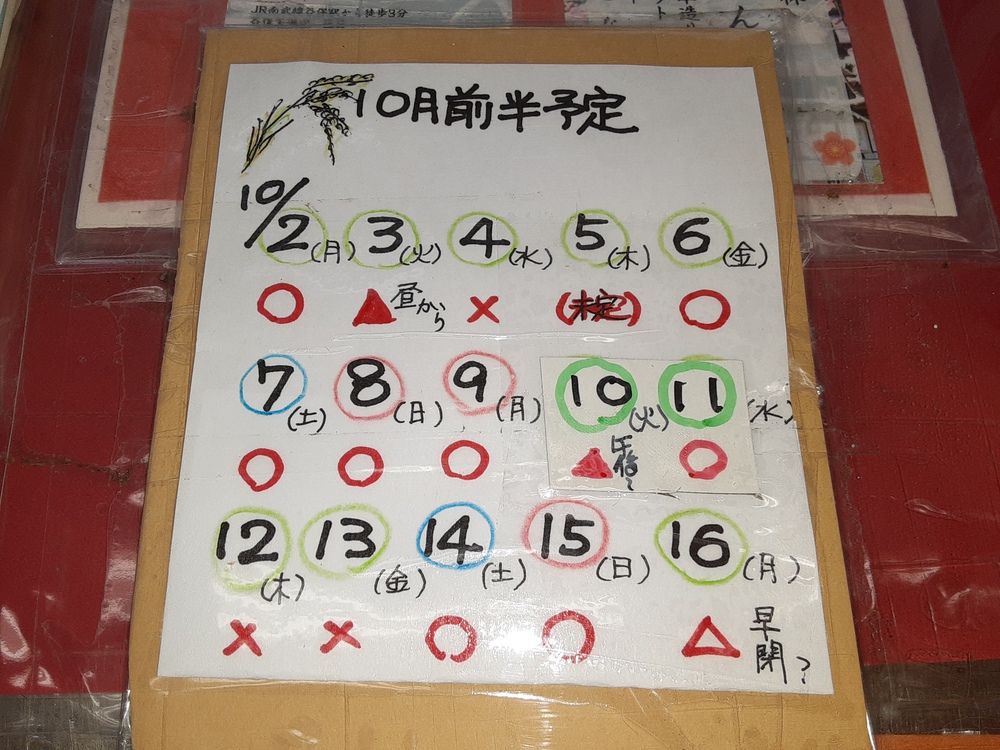 JR南武線谷保駅から徒歩3分
10月前半予定
10/2(月) 3(火) 4(水) 5(木) 6(金)
○ ▲昼から × (未定) ○
7(土) 8(日) 9(月) 10(火) 11(水)
○ ○ ○ ▲午後〜 ○
12(木) 13(金) 14(土) 15(日) 16(月)
× × ○ ○ △早閉?